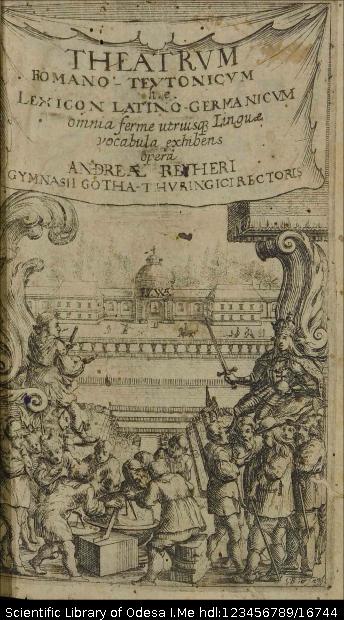 THEATRVM
ROMANO-TEVTONICVM
h.e.
LEXICON LATINO-GERMANICVM
omnia ferme utriusqȝ Linguæ
vocabula exhibens
operâ
ANDREÆ REYHERI
GYMNASII GOTHA-THVRINGICI RECTORIS
Scientific Library of Odesa I.Me hdl:123456789/16744